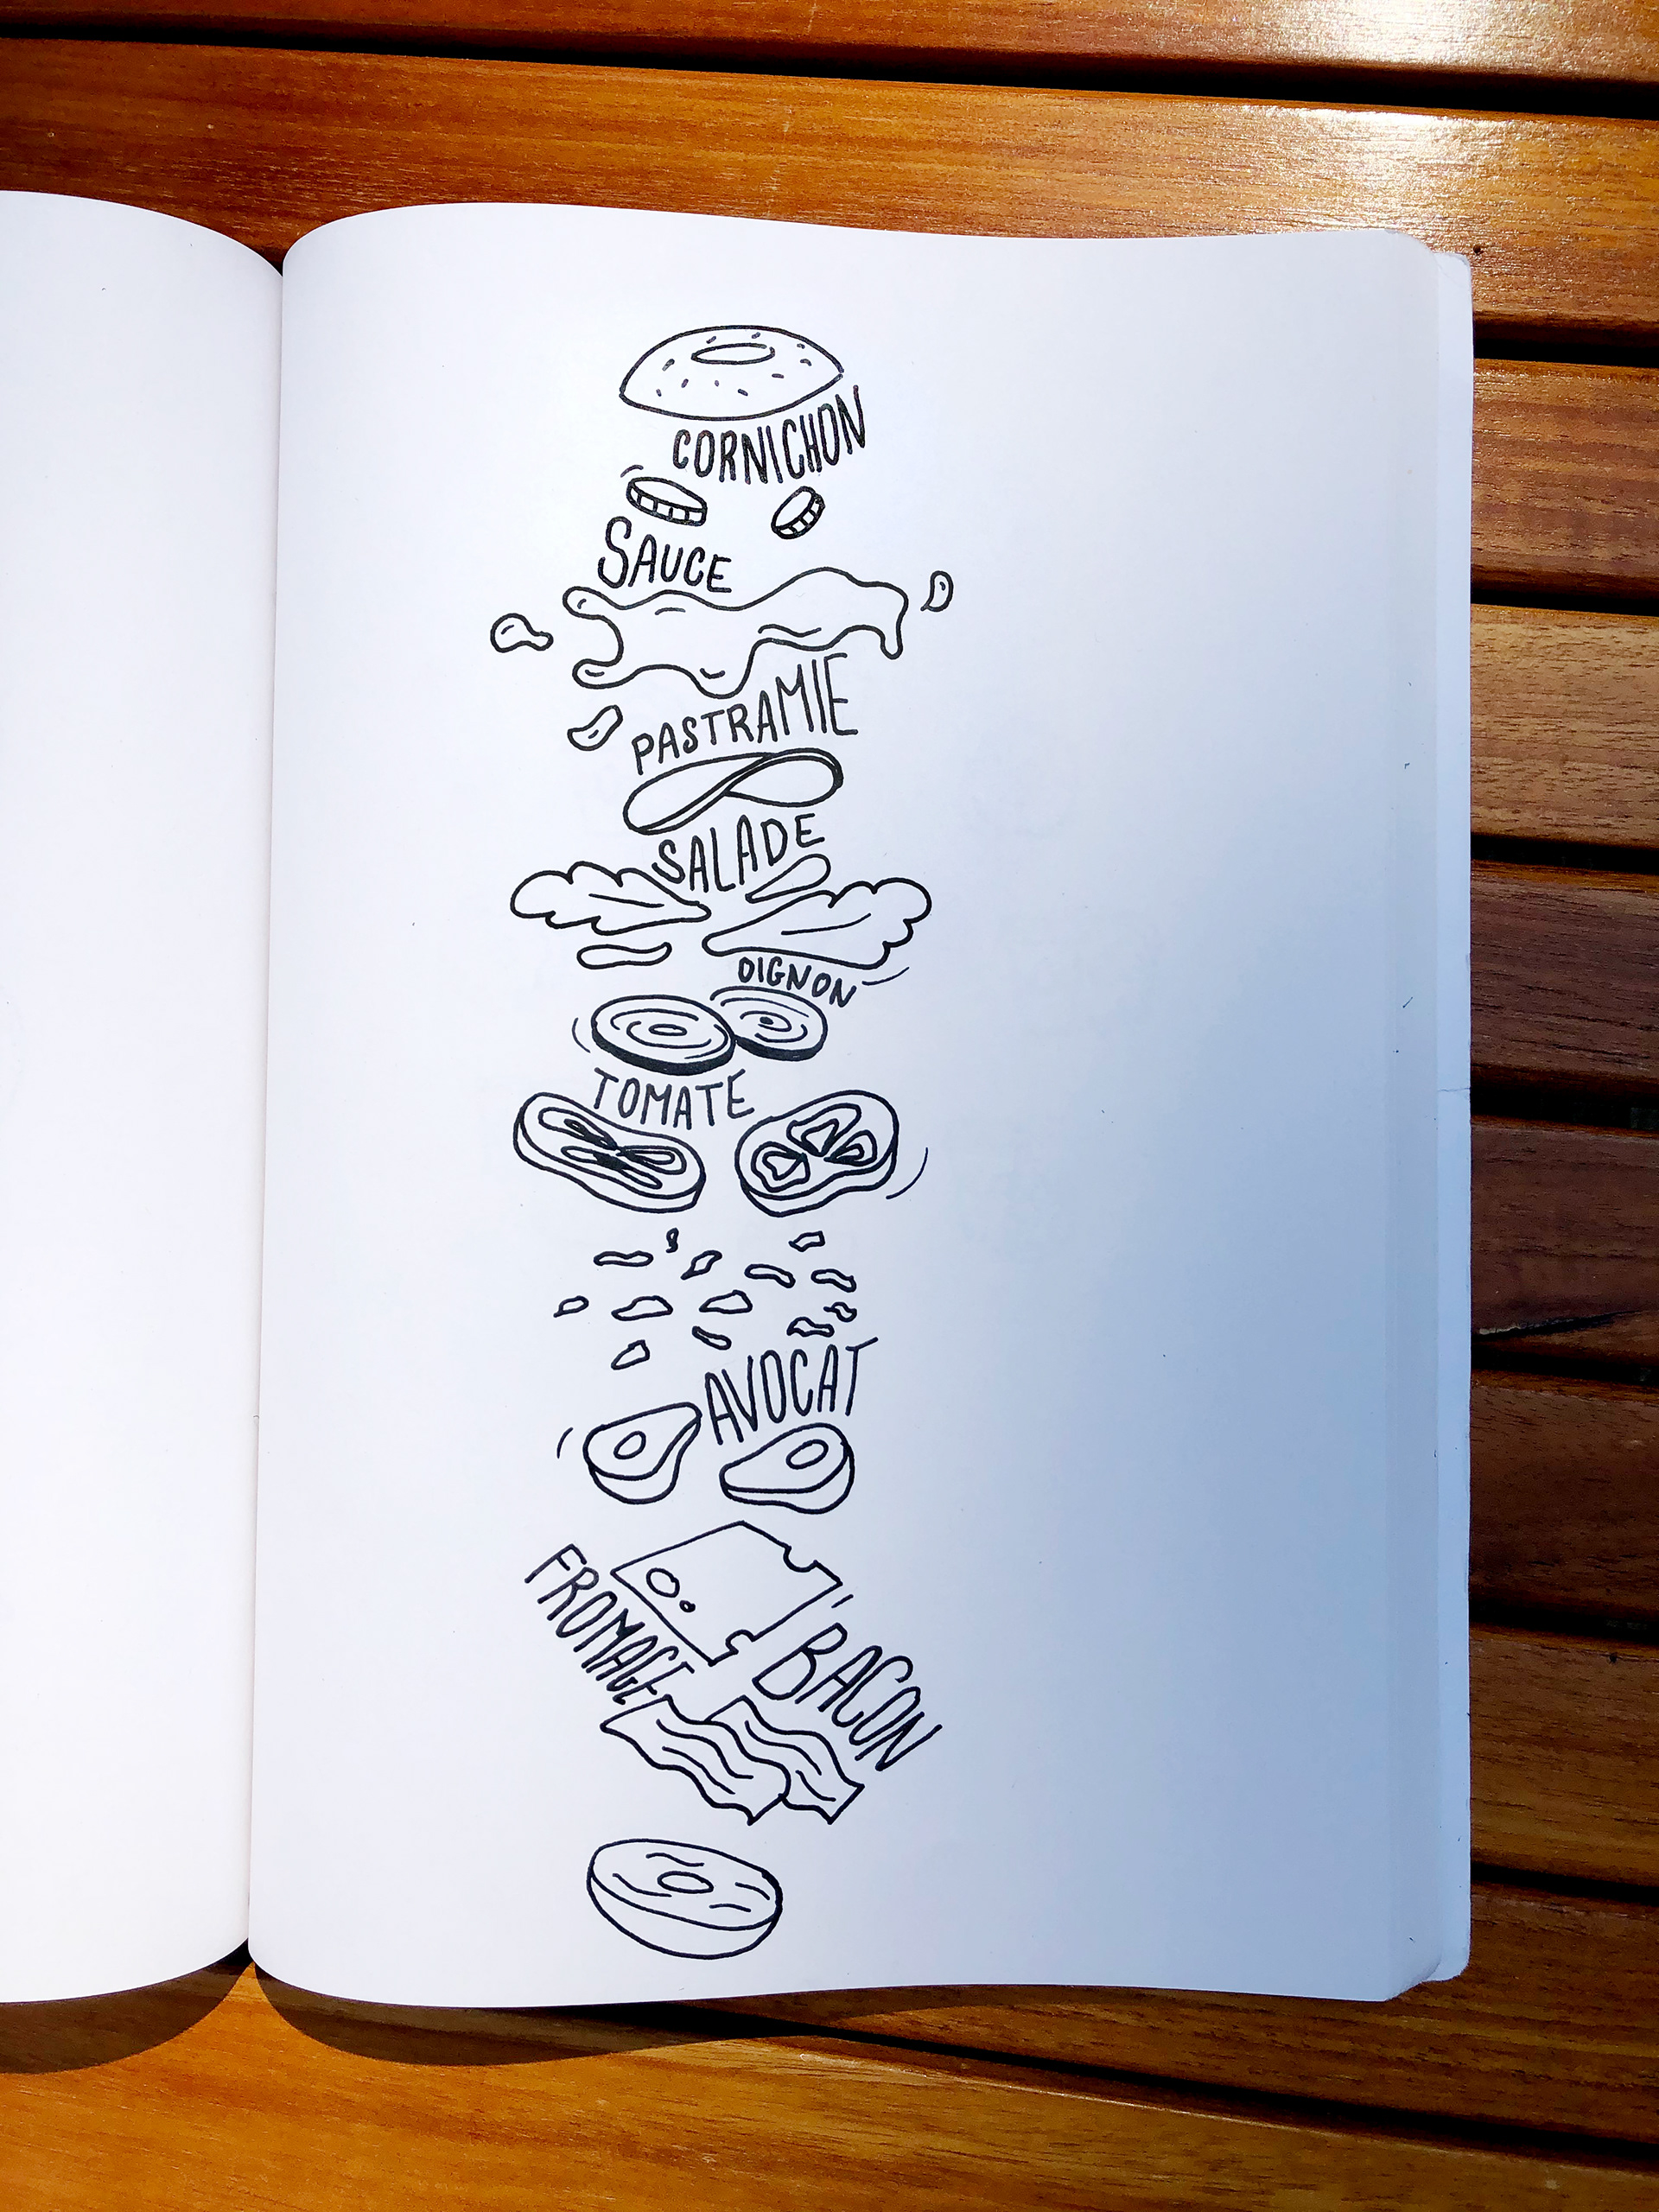 CORNICHON
SAUCE
PASTRAMIE
SALADE
OIGNON
TOMATE
AVOCAT
FROMAGE
BACON